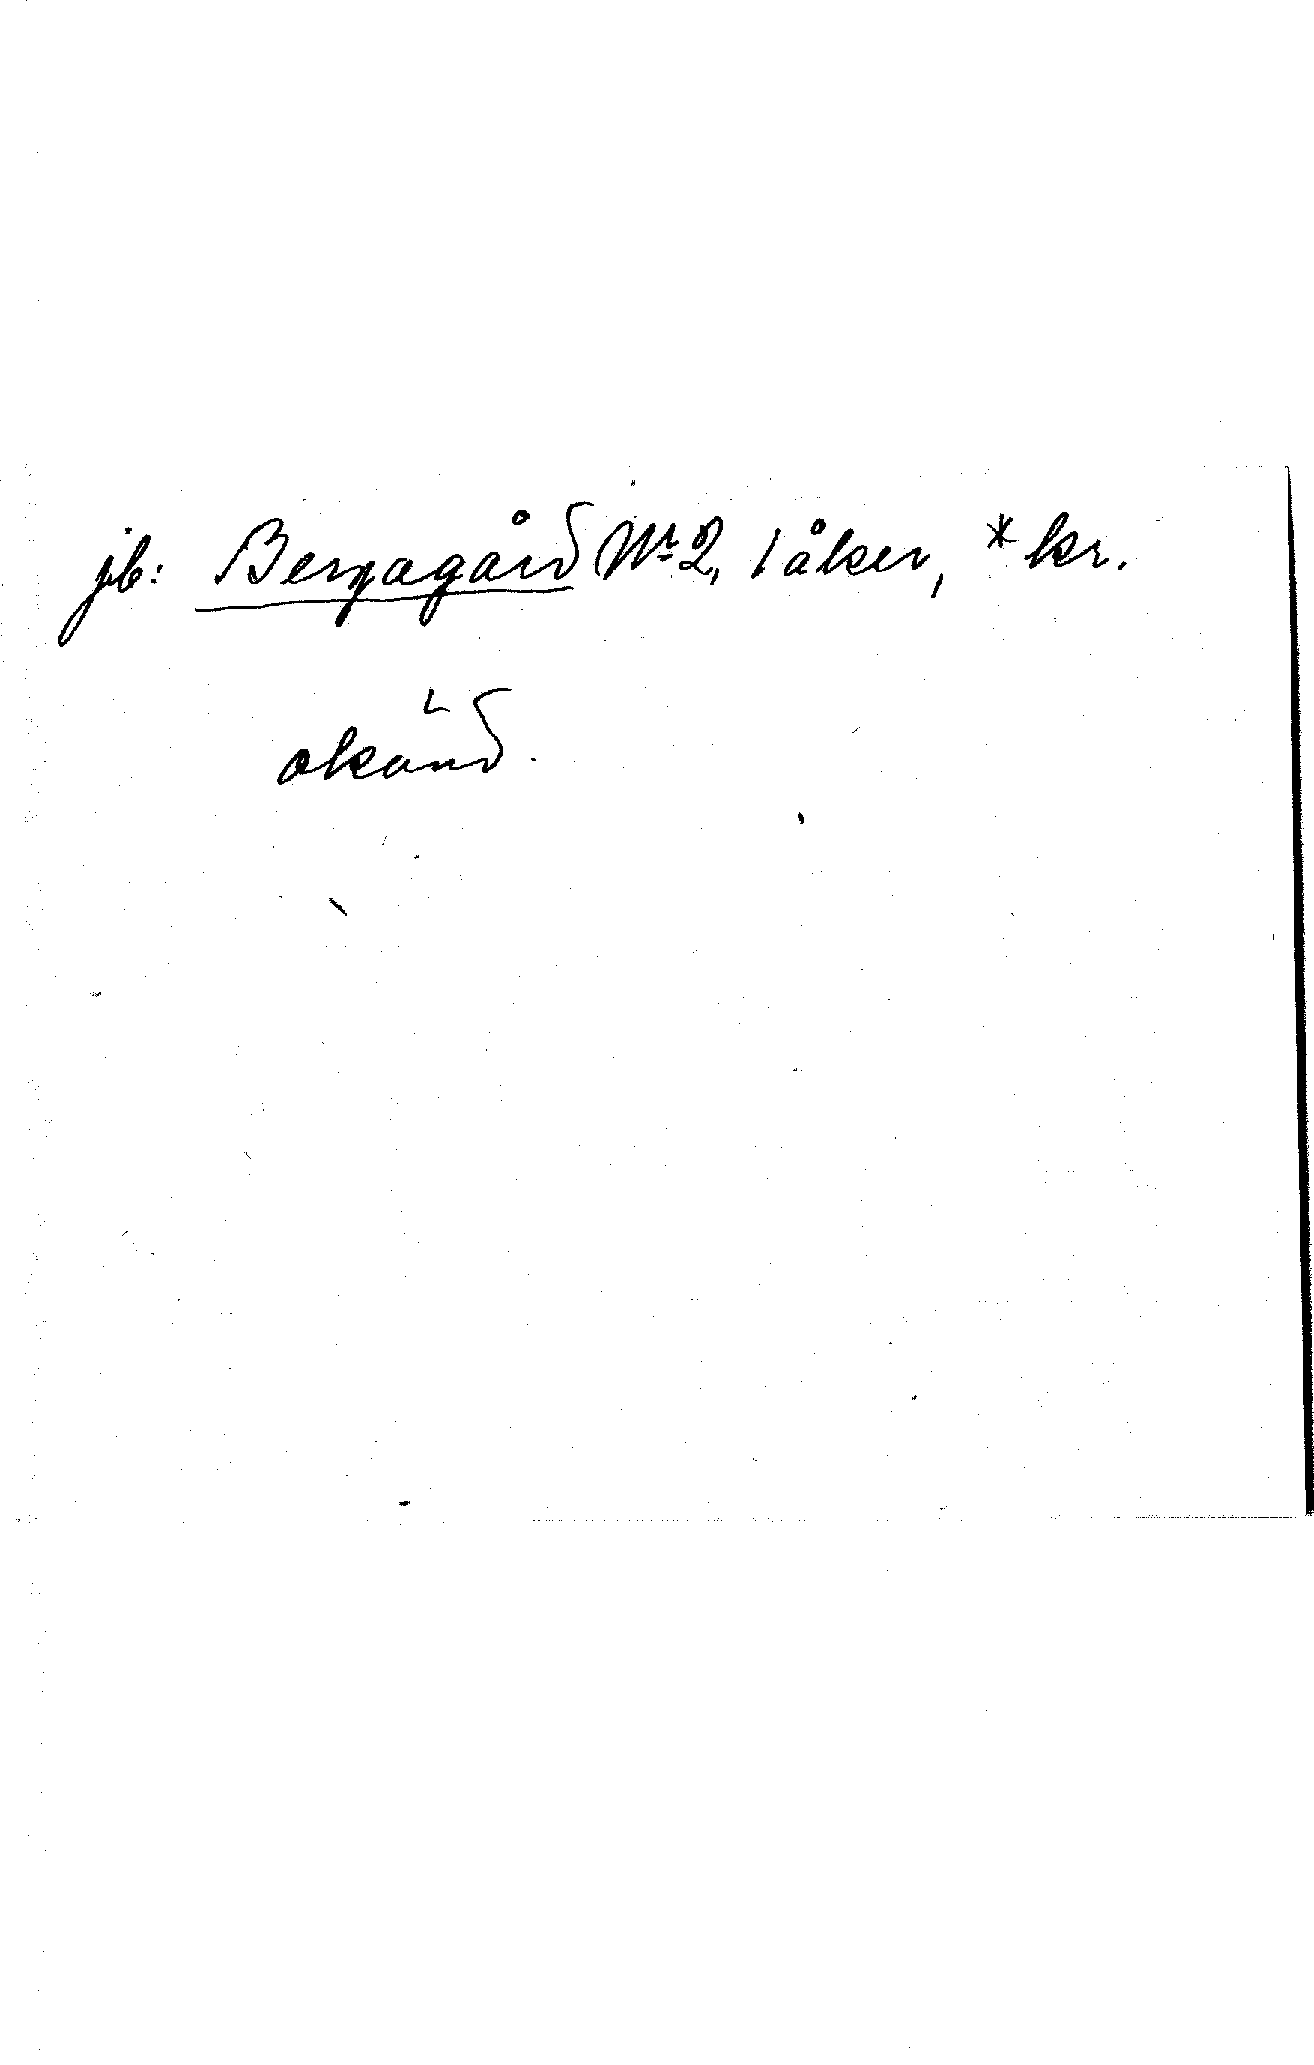 jb: Bergagård Nr 2, 1 åker, * kr.
okänd.